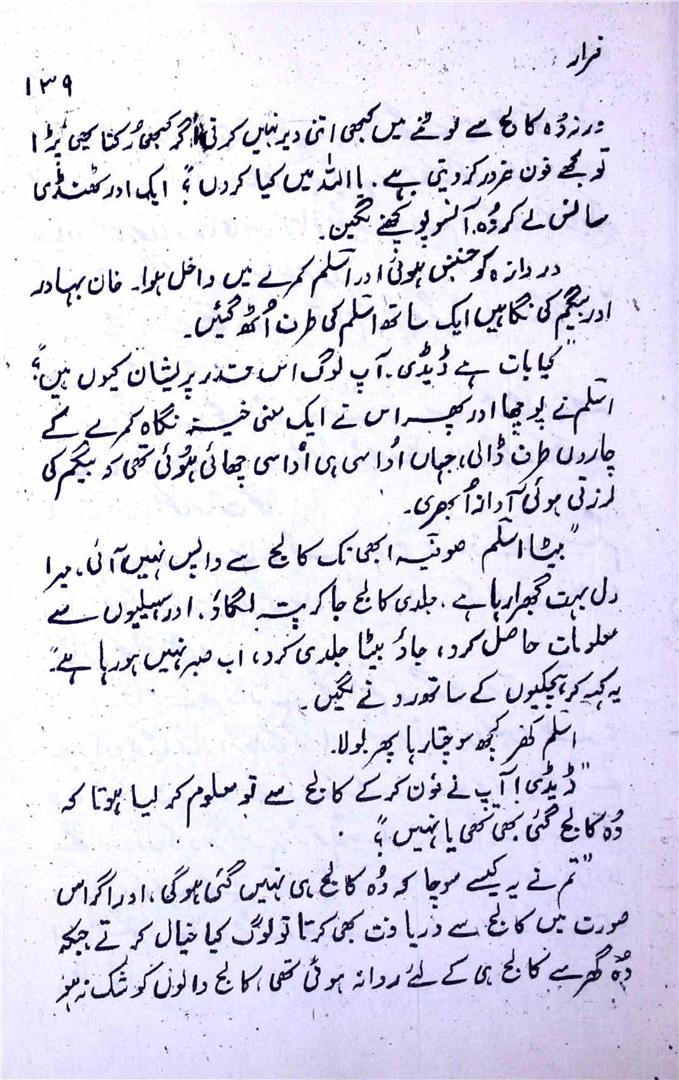 فرار
۱۳۹
ورنہ وُہ کالج سے لوٹنے میں کبھی اتنی دیر نہیں کرتی اگر کبھی رُکنا بھی پڑا
تو مجھے فون ضرور کر دیتی ہے۔ یا اللہ میں کیا کروں؟ ایک اور ٹھنڈی
سانس لے کر وُہ آنسو پونچھنے لگیں۔
دروازہ کو جنبش ہوئی اور اسلم کمرے میں داخل ہوا۔ خان بہادر
اور بیگم کی نگاہیں ایک ساتھ اسلم کی طرف اُٹھ گئیں۔
"کیا بات ہے ڈیڈی۔ آپ لوگ اس قدر پریشان کیوں ہیں؟"
اسلم نے پوچھا اور پھر اس نے ایک معنی خیز نگاہ کمرے کے
چاروں طرف ڈالی، جہاں اُداسی ہی اُداسی چھائی ہوئی تھی کہ بیگم کی
لرزتی ہوئی آواز اُبھری۔
"بیٹا اسلم صوفیہ ابھی تک کالج سے واپس نہیں آئی، میرا
دل بہت گھبرا رہا ہے۔ جلدی کالج جا کر پتہ لگاؤ، اور سہیلیوں سے
معلومات حاصل کرو، جاؤ بیٹا جلدی کرو، اب صبر نہیں ہو رہا ہے۔"
یہ کہہ کر ہچکیوں کے ساتھ رونے لگیں۔
اسلم کچھ سوچتا رہا پھر بولا۔
"ڈیڈی! آپ نے فون کر کے کالج سے تو معلوم کر لیا ہوتا کہ
وُہ کالج گئی بھی تھی یا نہیں؟"
"تم نے یہ کیسے سوچا کہ وُہ کالج ہی نہیں گئی ہو گی، اور اگر اس
صورت میں کالج سے دریافت بھی کرتا تو لوگ کیا خیال کرتے، جبکہ
وُہ گھر سے کالج ہی کے لئے روانہ ہوئی تھی، کالج والوں کو شک نہ ہو